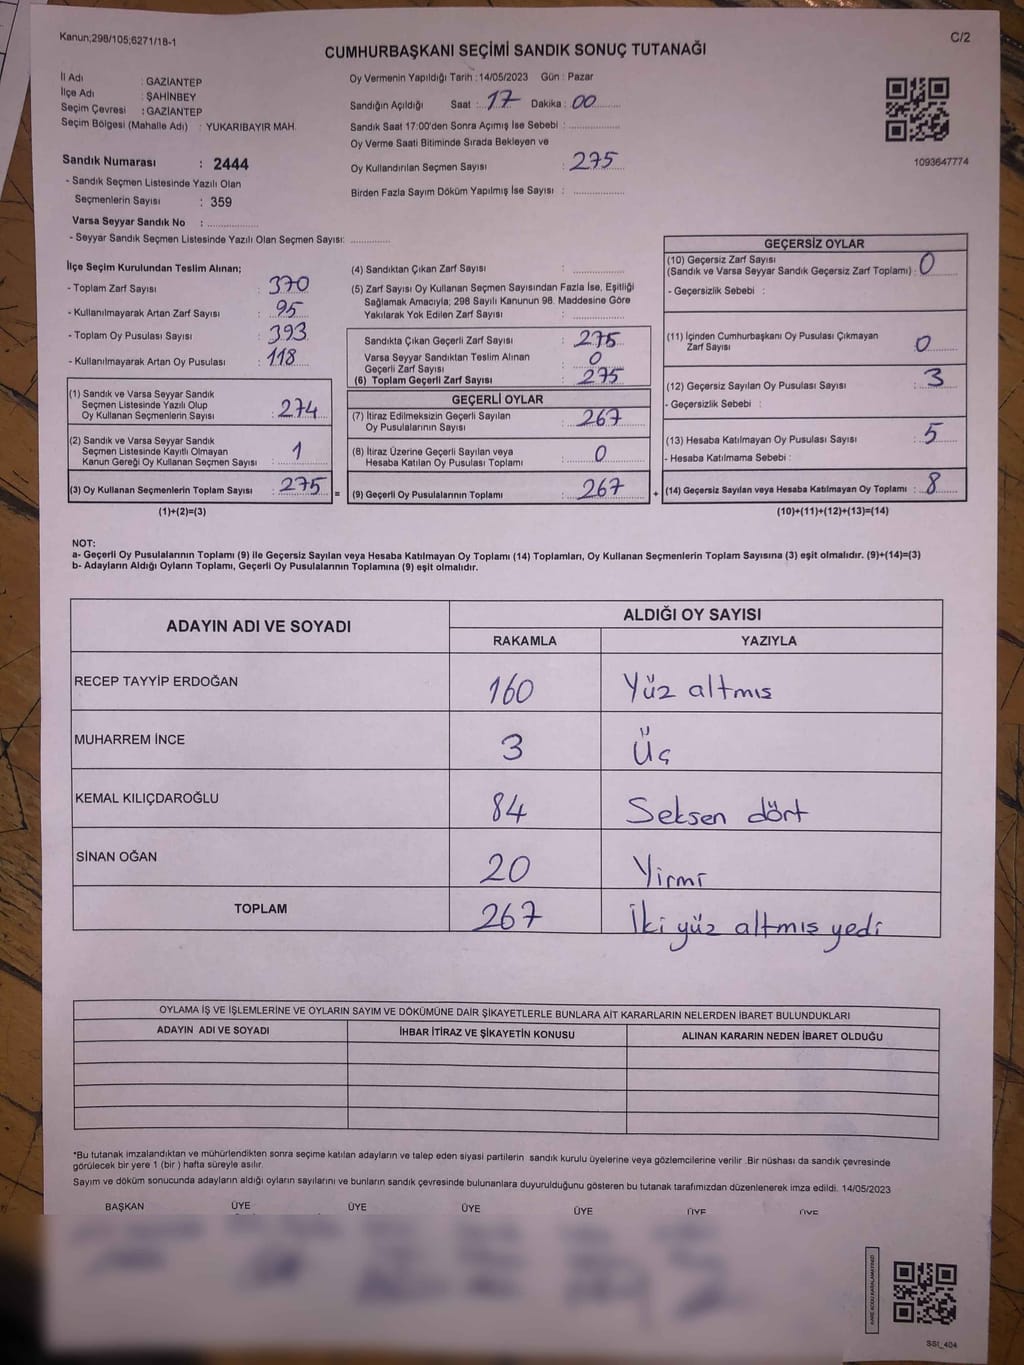 Kanun;298/105;6271/18-1
C/2
CUMHURBAŞKANI SEÇİMİ SANDIK SONUÇ TUTANAĞI
İl Adı : GAZİANTEP
İlçe Adı : ŞAHİNBEY
Seçim Çevresi : GAZİANTEP
Seçim Bölgesi (Mahalle Adı) : YUKARIBAYIR MAH.
Sandık Numarası : 2444
- Sandık Seçmen Listesinde Yazılı Olan
Seçmenlerin Sayısı : 359
Varsa Seyyar Sandık No : ................
- Seyyar Sandık Seçmen Listesinde Yazılı Olan Seçmen Sayısı: ............
Oy Vermenin Yapıldığı Tarih : 14/05/2023 Gün : Pazar
Sandığın Açıldığı Saat : 17 Dakika : 00
Sandık Saat 17:00'den Sonra Açımış İse Sebebi : ................
Oy Verme Saati Bitiminde Sırada Bekleyen ve
Oy Kullandırılan Seçmen Sayısı : 275
Birden Fazla Sayım Döküm Yapılmış İse Sayısı : ................
1093647774
İlçe Seçim Kurulundan Teslim Alınan;
- Toplam Zarf Sayısı : 370
- Kullanılmayarak Artan Zarf Sayısı : 95
- Toplam Oy Pusulası Sayısı : 393
- Kullanılmayarak Artan Oy Pusulası : 118
(1) Sandık ve Varsa Seyyar Sandık
Seçmen Listesinde Yazılı Olup
Oy Kullanan Seçmenlerin Sayısı : 274
(2) Sandık ve Varsa Seyyar Sandık
Seçmen Listesinde Kayıtlı Olmayan
Kanun Gereği Oy Kullanan Seçmen Sayısı : 1
(3) Oy Kullanan Seçmenlerin Toplam Sayısı : 275 =
(1)+(2)=(3)
(4) Sandıktan Çıkan Zarf Sayısı : ................
(5) Zarf Sayısı Oy Kullanan Seçmen Sayısından Fazla İse, Eşitliği
Sağlamak Amacıyla; 298 Sayılı Kanunun 98. Maddesine Göre
Yakılarak Yok Edilen Zarf Sayısı : ................
Sandıkta Çıkan Geçerli Zarf Sayısı : 275
Varsa Seyyar Sandıktan Teslim Alınan
Geçerli Zarf Sayısı : 0
(6) Toplam Geçerli Zarf Sayısı : 275
GEÇERLİ OYLAR
(7) İtiraz Edilmeksizin Geçerli Sayılan
Oy Pusulalarının Sayısı : 267
(8) İtiraz Üzerine Geçerli Sayılan veya
Hesaba Katılan Oy Pusulası Toplamı : 0
(9) Geçerli Oy Pusulalarının Toplamı : 267 +
GEÇERSİZ OYLAR
(10) Geçersiz Zarf Sayısı
(Sandık ve Varsa Seyyar Sandık Geçersiz Zarf Toplamı) : 0
- Geçersizlik Sebebi :
(11) İçinden Cumhurbaşkanı Oy Pusulası Çıkmayan
Zarf Sayısı : 0
(12) Geçersiz Sayılan Oy Pusulası Sayısı : 3
- Geçersizlik Sebebi :
(13) Hesaba Katılmayan Oy Pusulası Sayısı : 5
- Hesaba Katılmama Sebebi :
(14) Geçersiz Sayılan veya Hesaba Katılmayan Oy Toplamı : 8
(10)+(11)+(12)+(13)=(14)
NOT:
a- Geçerli Oy Pusulalarının Toplamı (9) ile Geçersiz Sayılan veya Hesaba Katılmayan Oy Toplamı (14) Toplamları, Oy Kullanan Seçmenlerin Toplam Sayısına (3) eşit olmalıdır. (9)+(14)=(3)
b- Adayların Aldığı Oyların Toplamı, Geçerli Oy Pusulalarının Toplamına (9) eşit olmalıdır.
ADAYIN ADI VE SOYADI
ALDIĞI OY SAYISI
RAKAMLA YAZIYLA
RECEP TAYYİP ERDOĞAN 160 Yüz altmıs
MUHARREM İNCE 3 Üç
KEMAL KILIÇDAROĞLU 84 Seksen dört
SİNAN OĞAN 20 Yirmi
TOPLAM 267 İki yüz altmıs yedi
OYLAMA İŞ VE İŞLEMLERİNE VE OYLARIN SAYIM VE DÖKÜMÜNE DAİR ŞİKAYETLERLE BUNLARA AİT KARARLARIN NELERDEN İBARET BULUNDUKLARI
ADAYIN ADI VE SOYADI İHBAR İTİRAZ VE ŞİKAYETİN KONUSU ALINAN KARARIN NEDEN İBARET OLDUĞU
*Bu tutanak imzalandıktan ve mühürlendikten sonra seçime katılan adayların ve talep eden siyasi partilerin sandık kurulu üyelerine veya gözlemcilerine verilir .Bir nüshası da sandık çevresinde
görülecek bir yere 1 (bir ) hafta süreyle asılır.
Sayım ve döküm sonucunda adayların aldığı oyların sayılarını ve bunların sandık çevresinde bulunanlara duyurulduğunu gösteren bu tutanak tarafımızdan düzenlenerek imza edildi. 14/05/2023
BAŞKAN ÜYE ÜYE ÜYE ÜYE ÜYE ÜYE
KARE KODU KARALAMAYINIZ!
SSI_404